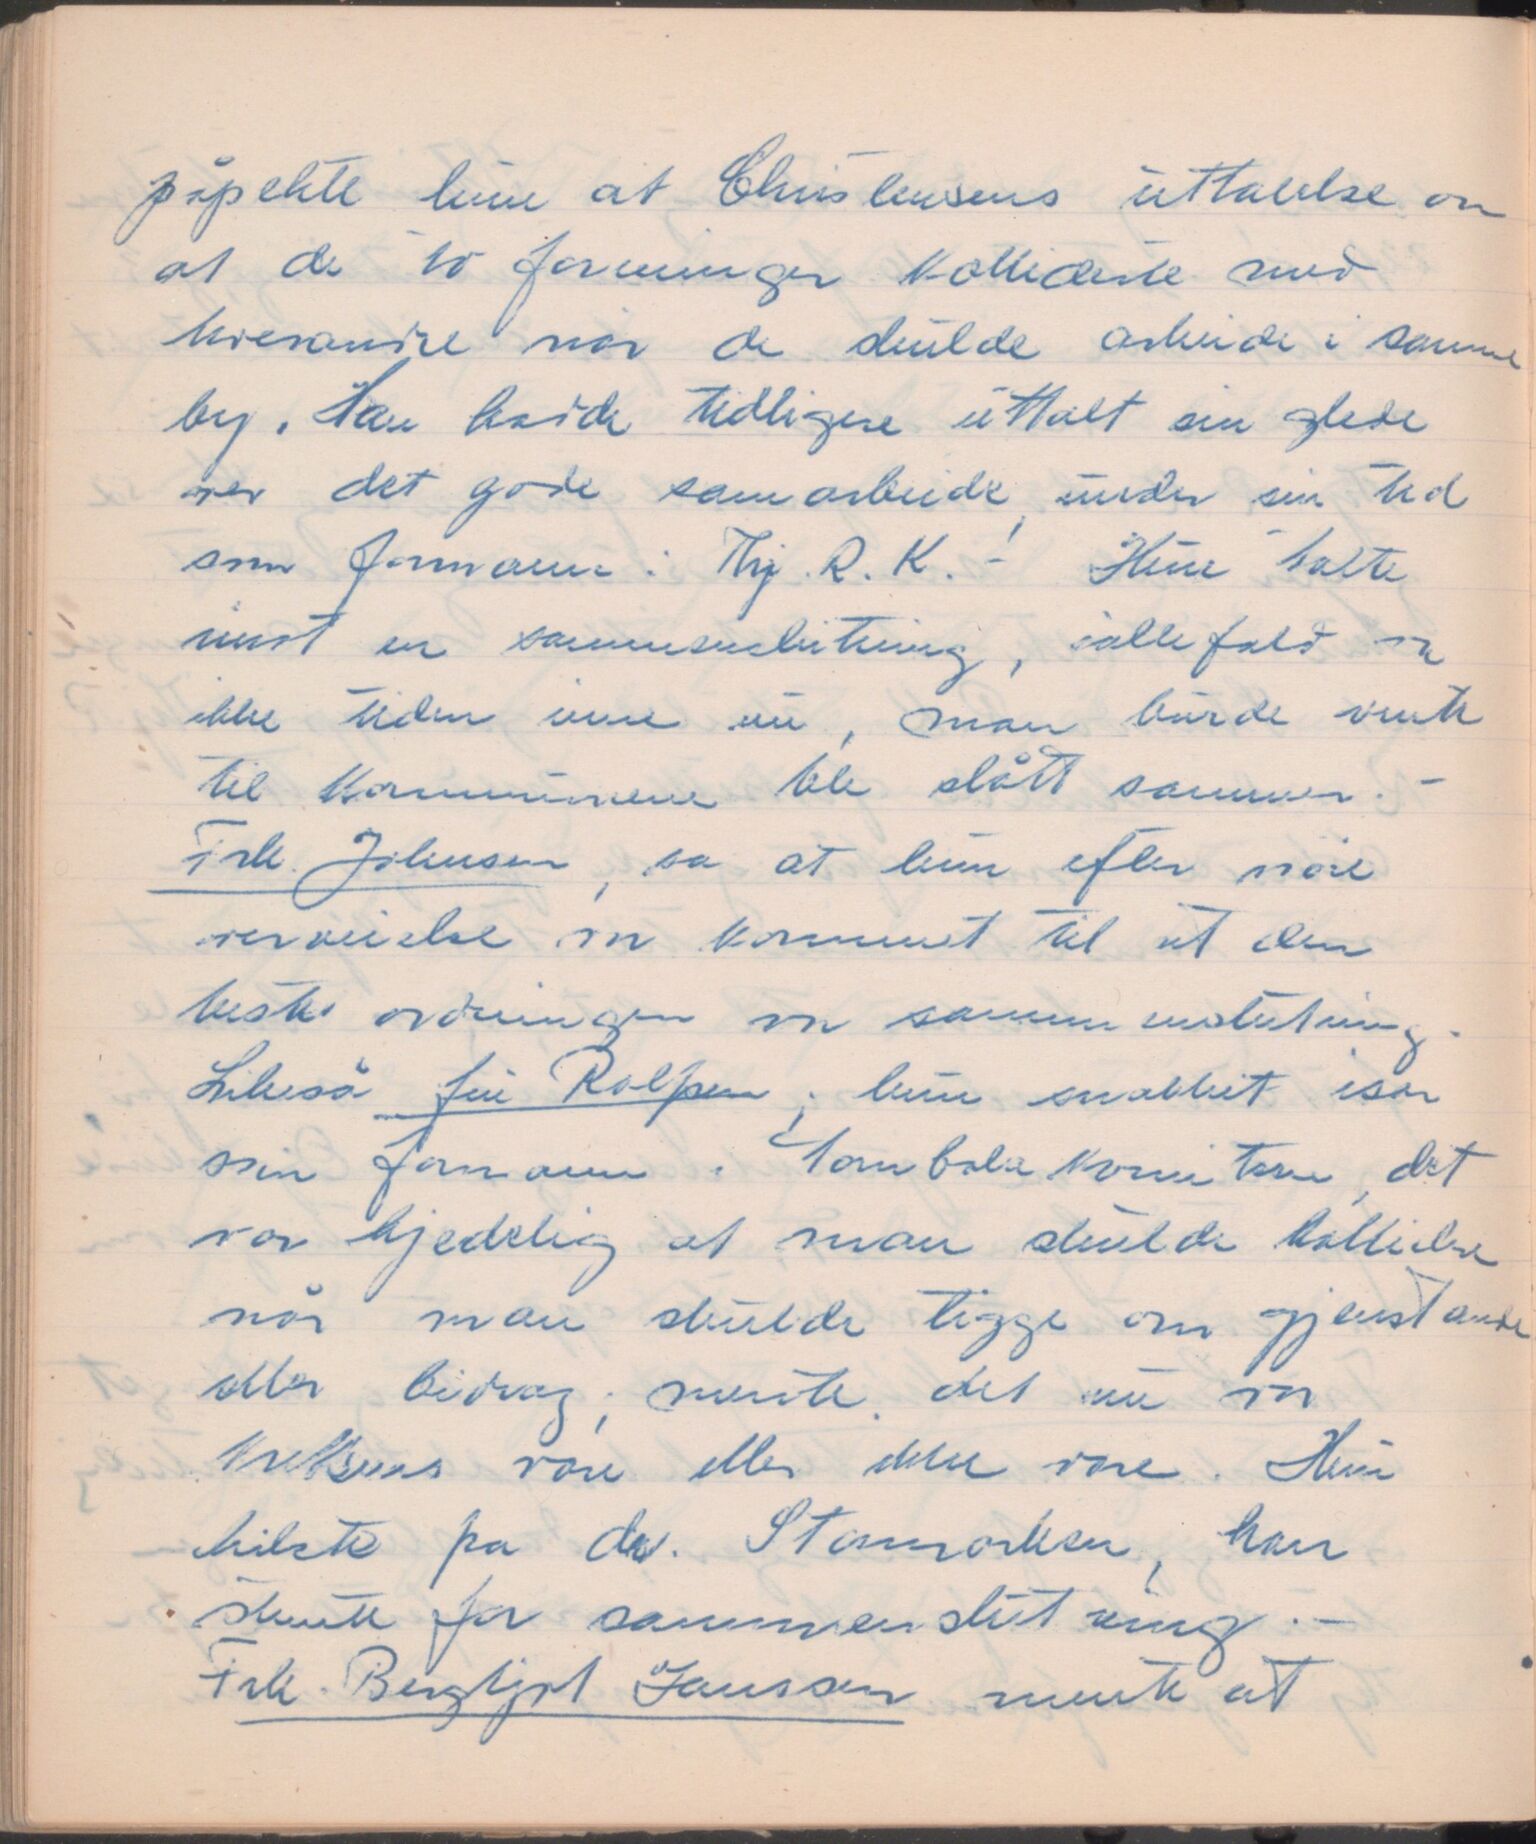 påpekte hun at Christensens uttalelse om
at de to foreninger kolliderte med
hverandre når de skulde arbeide i samme
by. Han hadde tidligere uttalt sin glede
over det gode samarbeide, under sin tid
som formann i Hetl. R. K. - Hun talte
imot en sammenslutning, iallefald var
ikke tiden inne nu, man burde vente
til kommunene ble slått sammen. -
Frk. Johnsen, sa at hun efter nöie
overveielse var kommet til at den
beste ordningen var sammenslutning.
Likeså fru Rolfsen; hun snakket især
som formann i Tombolakomiteen, det
var kjedelig at man skulde kollidere
når man skulde tigge om gjenstande
eller bidrag; mente det nu var
Kretsens være eller ikke være. Hun
hilste fra dr. Stormorken, han
stemte for sammenslutning. -
Frk. Bergljot Janssen mente at